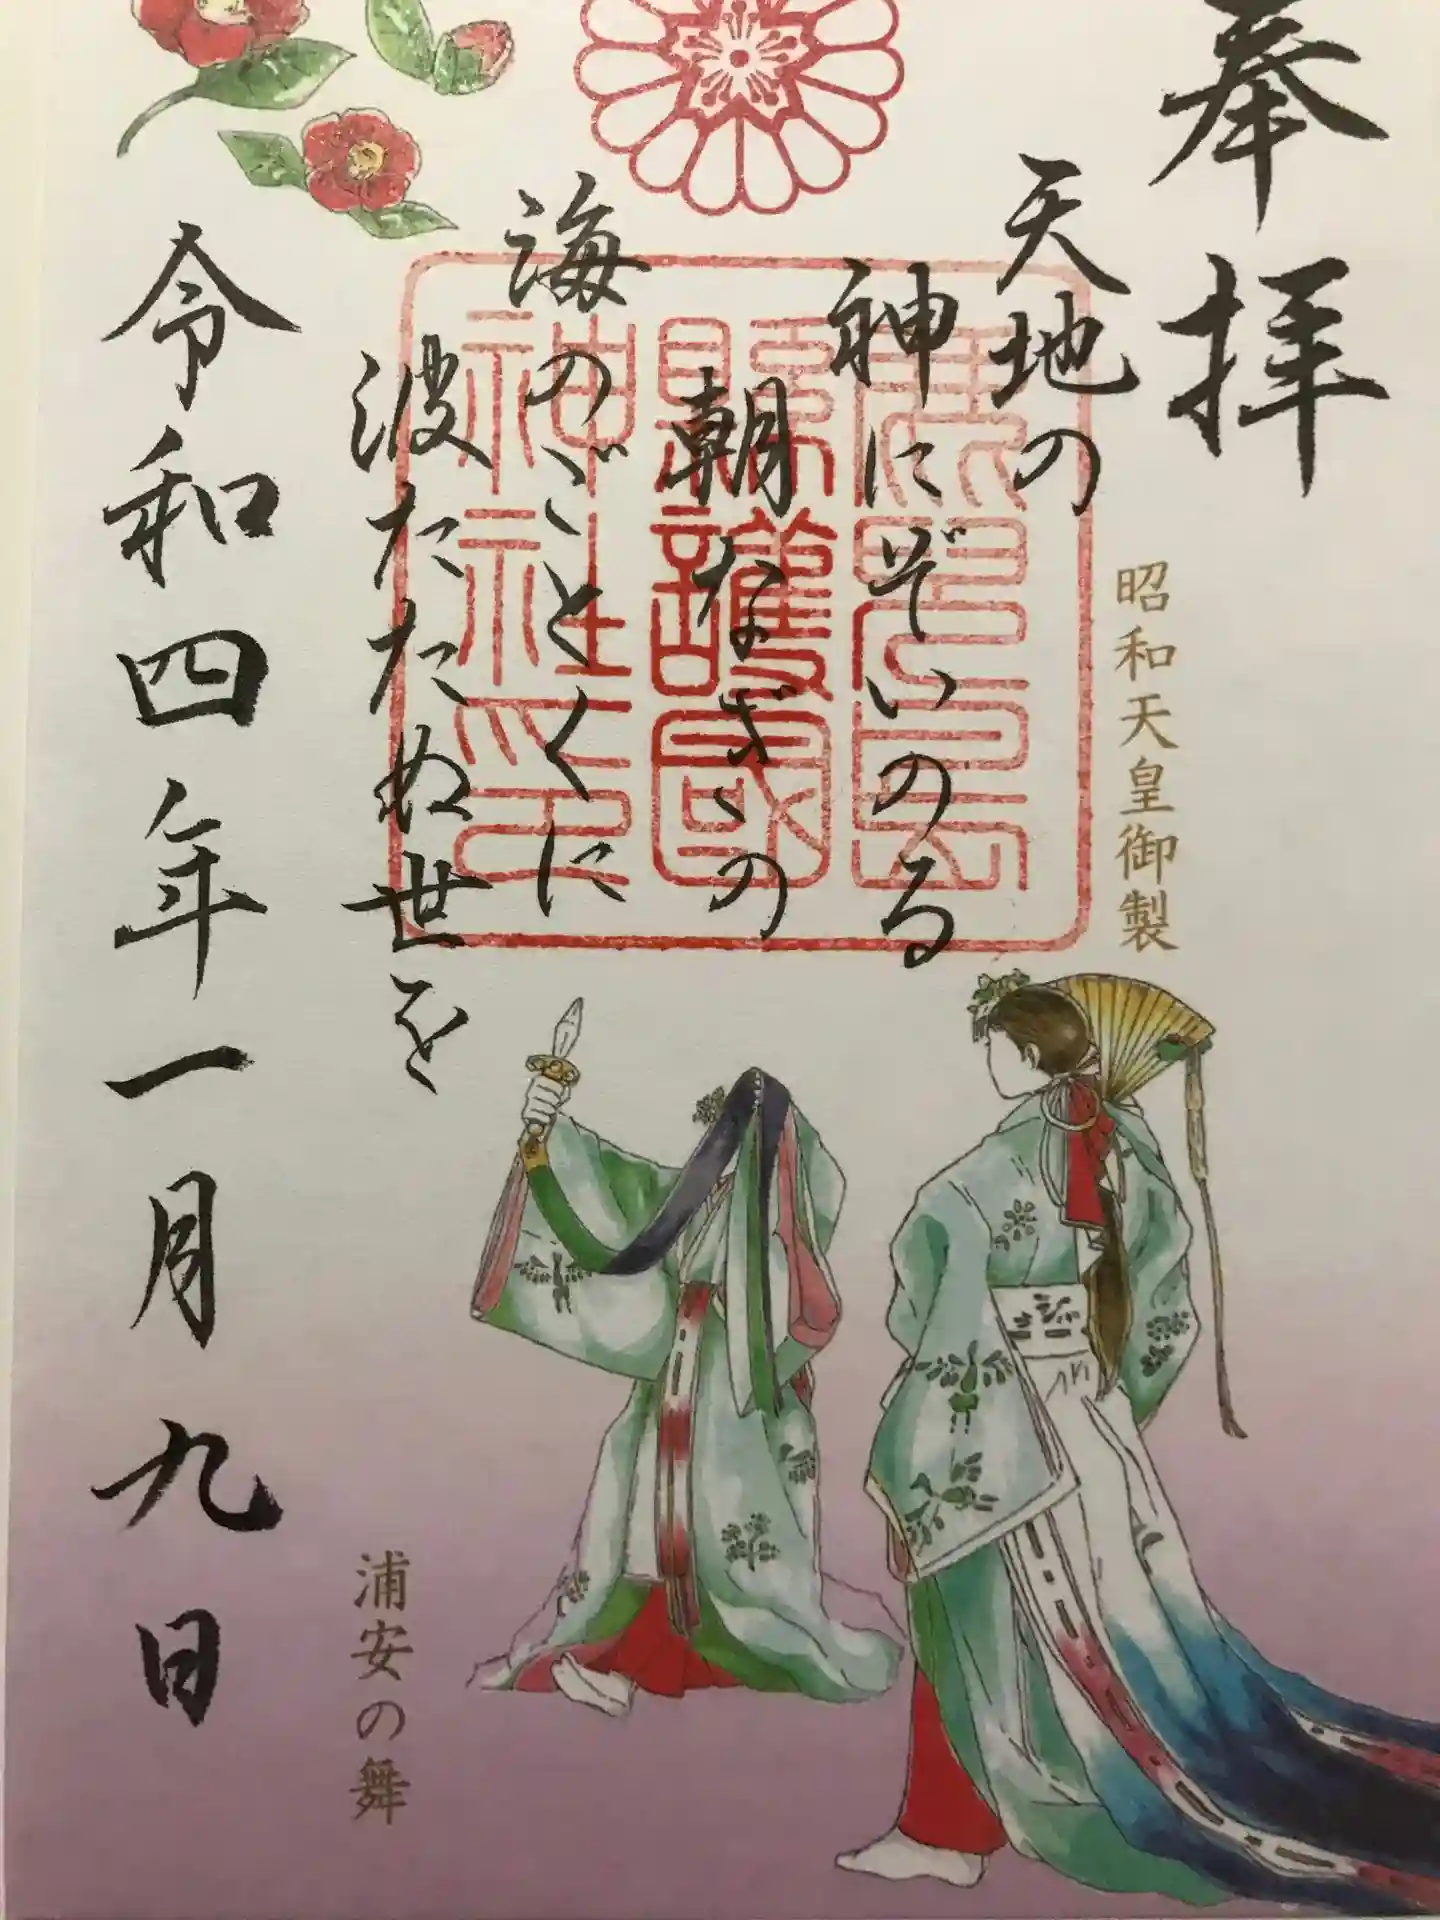 奉拝
天地の
神にぞいのる
朝なぎゝの
海のごとくに
波たたぬ世を
昭和天皇御製
鹿児島
縣護國
神社印
令和四年一月九日
浦安の舞